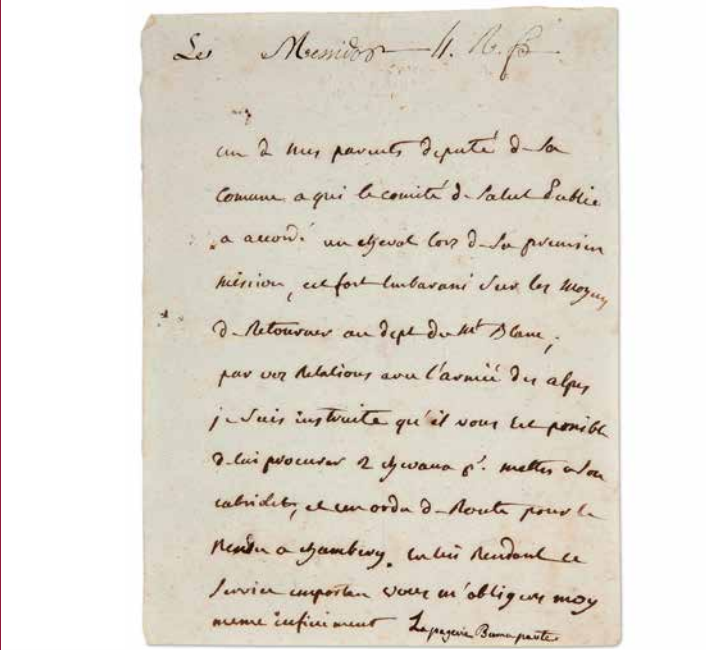 Les Messidor 4. R. fs
un d mes parents députe d sa
Comune a qui le comité d Salut Public
a accordé un cheval lors d sa premier
mission, est fort Embarassé Sur les Moyens
d Retourner au dept du Mt Blanc,
par vos Relations avec l'armée des alpes
je Suis instruite qu'il vous Est possible
d lui procurer 2 chevaux pr. mettre a son
cabriolet, et un ordre d Route pour le
Rendre a Chambery. en lui Rendant ce
Service important vous m'obligeres moy
meme infiniment Lapagerie Buonaparte